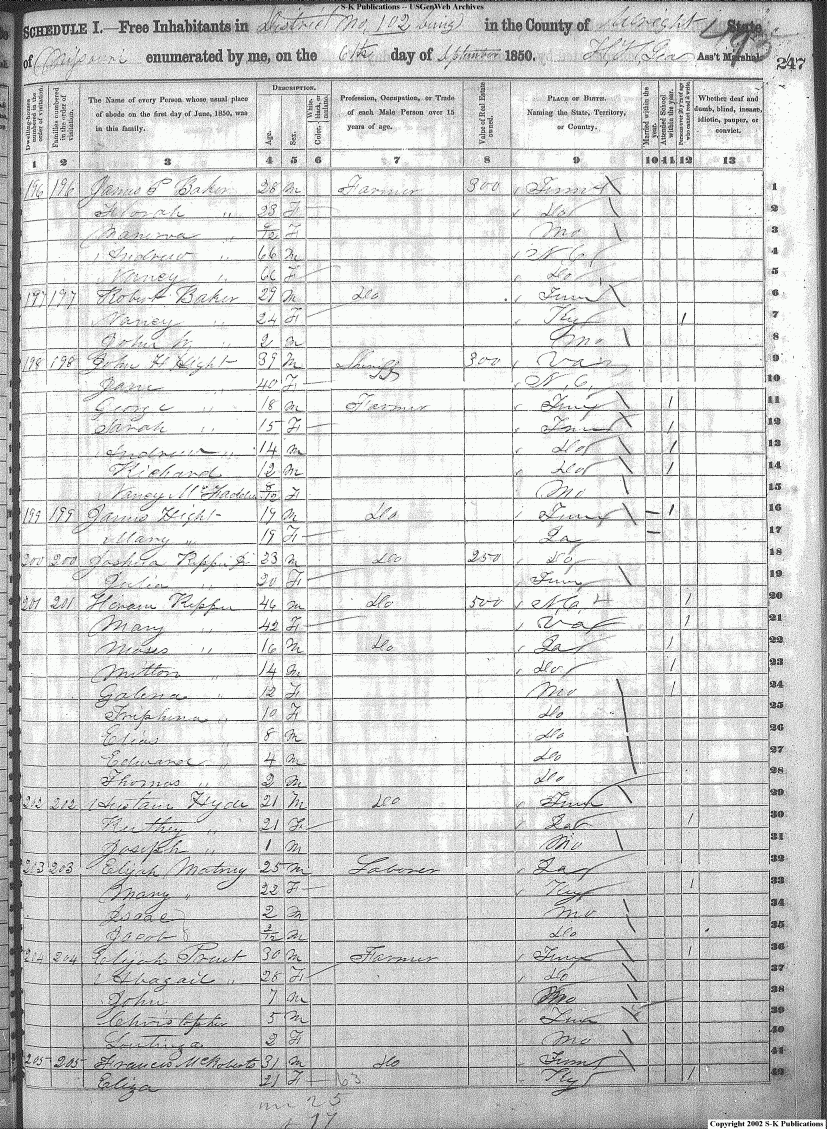 S-K Publications -- USGenWeb Archives
SCHEDULE I.—Free Inhabitants in District No 102 being in the County of Wright State
of Missouri enumerated by me, on the 6th day of September 1850. Ass't Marshal
247
Dwelling-houses numbered in the order of visitation.
Families numbered in the order of visitation.
The Name of every Person whose usual place of abode on the first day of June, 1850, was in this family.
DESCRIPTION.
Age.
Sex.
Color, White, black, or mulatto.
Profession, Occupation, or Trade of each Male Person over 15 years of age.
Value of Real Estate owned.
PLACE OF BIRTH. Naming the State, Territory, or Country.
Married within the year.
Attended School within the year.
Persons over 20 y'rs of age who cannot read & write.
Whether deaf and dumb, blind, insane, idiotic, pauper, or convict.
1 2 3 4 5 6 7 8 9 10 11 12 13
196 196 James P Baker 28 M Farmer 300 Tenn 1
" 23 F Do 2
Manerva " F Mo 3
Andrew " 66 M N.C. 4
Nancy " F Do 5
197 197 Robert Baker 29 M Do Tenn 6
Nancy " 24 F Ky 1 7
John " 2 M Mo 8
198 198 John H Hight 39 M Sheriff 300 Va 9
Jane " 40 F N.C. 10
George " 18 M Farmer Tenn 1 11
Sarah " 15 F Tenn 1 12
Andrew " 14 M Do 1 13
Richard 12 M Do 1 14
Nancy McFadden 8/12 F Mo 15
199 199 James Hight 19 M Do Tenn 1 16
Mary " 19 F Ia 17
200 200 Joshua 23 M Do 250 Do 18
20 F Tenn 19
201 201 Hiram 46 M Do 500 N.C. 1 20
Mary " 42 F Va 1 21
Moses " 16 M Do Ia 1 22
Milton " 14 M Do 1 23
Galena " 12 F Mo 1 24
Triphena " 10 F Do 25
Elias " 8 M Do 26
Edward " 4 M Do 27
Thomas " 2 M Do 28
202 202 Hyde 21 M Do Tenn 29
" 21 F 1 30
Joseph " 1 M Mo 31
203 203 Elijah Matney 25 M Laborer Ia 32
Mary " 22 F Ky 1 33
Isaac 2 M Mo 34
Jacob M Do 35
204 204 Elijah Pruit 30 M Farmer Tenn 1 36
Abagail " 28 F Do 37
John 7 M Mo 38
Christopher 5 M 39
2 F Mo 40
205 205 Francis McRoberts 31 M Do Tenn 41
Eliza 21 F Ky 1 42
63
m 25
17
Copyright 2002 S-K Publications